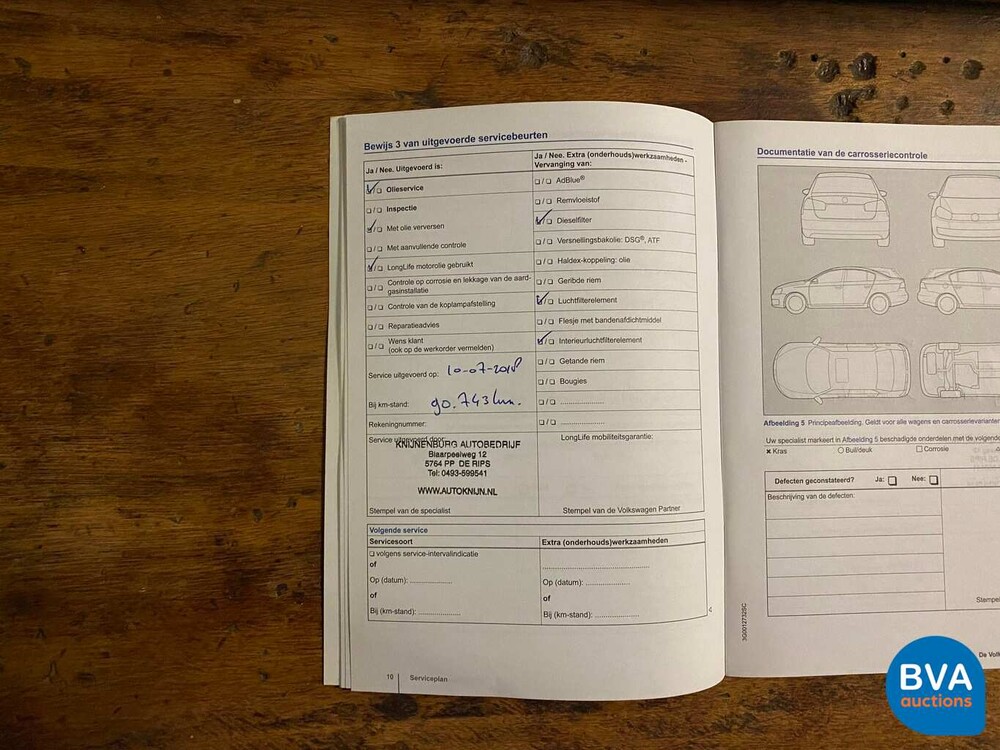 Bewijs 3 van uitgevoerde servicebeurten
Ja / Nee. Uitgevoerd is:
Olieservice
Inspectie
Met olie verversen
Met aanvullende controle
LongLife motorolie gebruikt
Controle op corrosie en lekkage van de aard-
gasinstallatie
Controle van de koplampafstelling
Reparatieadvies
Wens klant
(ook op de werkorder vermelden)
Service uitgevoerd op: 10-07-2018
Bij km-stand: 90.743 km.
Rekeningnummer:
Service uitgevoerd door:
KNIJNENBURG AUTOBEDRIJF
Blaarpeelweg 12
5764 PP DE RIPS
Tel: 0493-599541
WWW.AUTOKNIJN.NL
Stempel van de specialist
Ja / Nee. Extra (onderhouds)werkzaamheden -
Vervanging van:
AdBlue®
Remvloeistof
Dieselfilter
Versnellingsbakolie: DSG®, ATF
Haldex-koppeling: olie
Geribde riem
Luchtfilterelement
Flesje met bandenafdichtmiddel
Interieurluchtfilterelement
Getande riem
Bougies
LongLife mobiliteitsgarantie:
Stempel van de Volkswagen Partner
Volgende service
Servicesoort
volgens service-intervalindicatie
of
Op (datum):
of
Bij (km-stand):
Extra (onderhouds)werkzaamheden
Op (datum):
of
Bij (km-stand):
10 Serviceplan
Documentatie van de carrosseriecontrole
Afbeelding 5 Principeafbeelding. Geldt voor alle wagens en carrosserievarianten
Uw specialist markeert in Afbeelding 5 beschadigde onderdelen met de volgende
Kras Buil/deuk Corrosie
Defecten geconstateerd? Ja: Nee:
Beschrijving van de defecten:
Stempel
3G0012732SC
De Volk
BVA
auctions